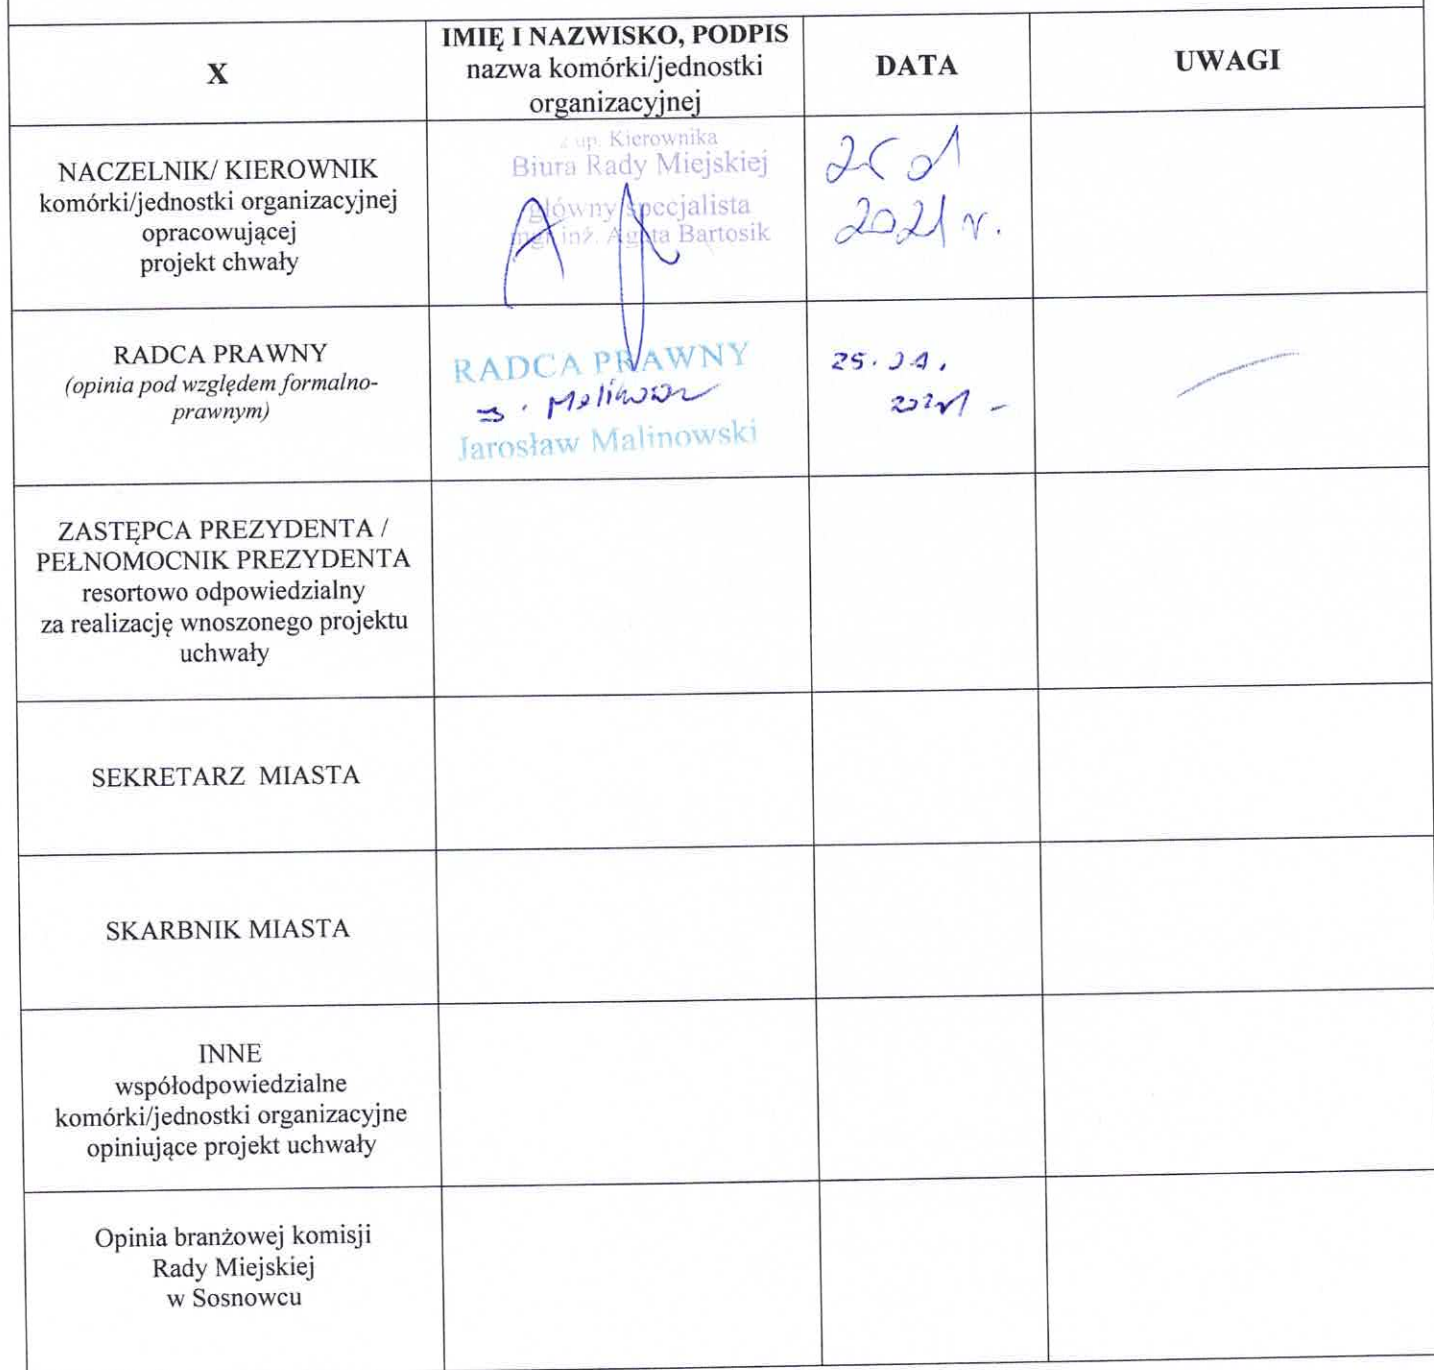 X
IMIĘ I NAZWISKO, PODPIS
nazwa komórki/jednostki
organizacyjnej
DATA
UWAGI
NACZELNIK/ KIEROWNIK
komórki/jednostki organizacyjnej
opracowującej
projekt chwały
z up. Kierownika
Biura Rady Miejskiej
główny specjalista
mgr inż. Agata Bartosik
2021 r.
RADCA PRAWNY
(opinia pod względem formalno-
prawnym)
RADCA PRAWNY
Jarosław Malinowski
ZASTĘPCA PREZYDENTA /
PEŁNOMOCNIK PREZYDENTA
resortowo odpowiedzialny
za realizację wnoszonego projektu
uchwały
SEKRETARZ MIASTA
SKARBNIK MIASTA
INNE
współodpowiedzialne
komórki/jednostki organizacyjne
opiniujące projekt uchwały
Opinia branżowej komisji
Rady Miejskiej
w Sosnowcu